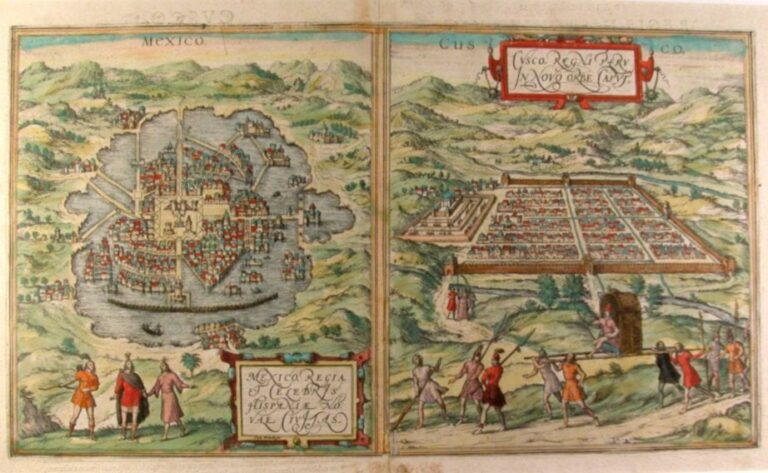 Mexico.
Cusco.
CVSCO, REGNI PERV
IN NOVO ORBE CAPVT.
MEXICO, REGIA
ET CELEBRIS
HISPANIÆ NO
VAE CIVITAS.